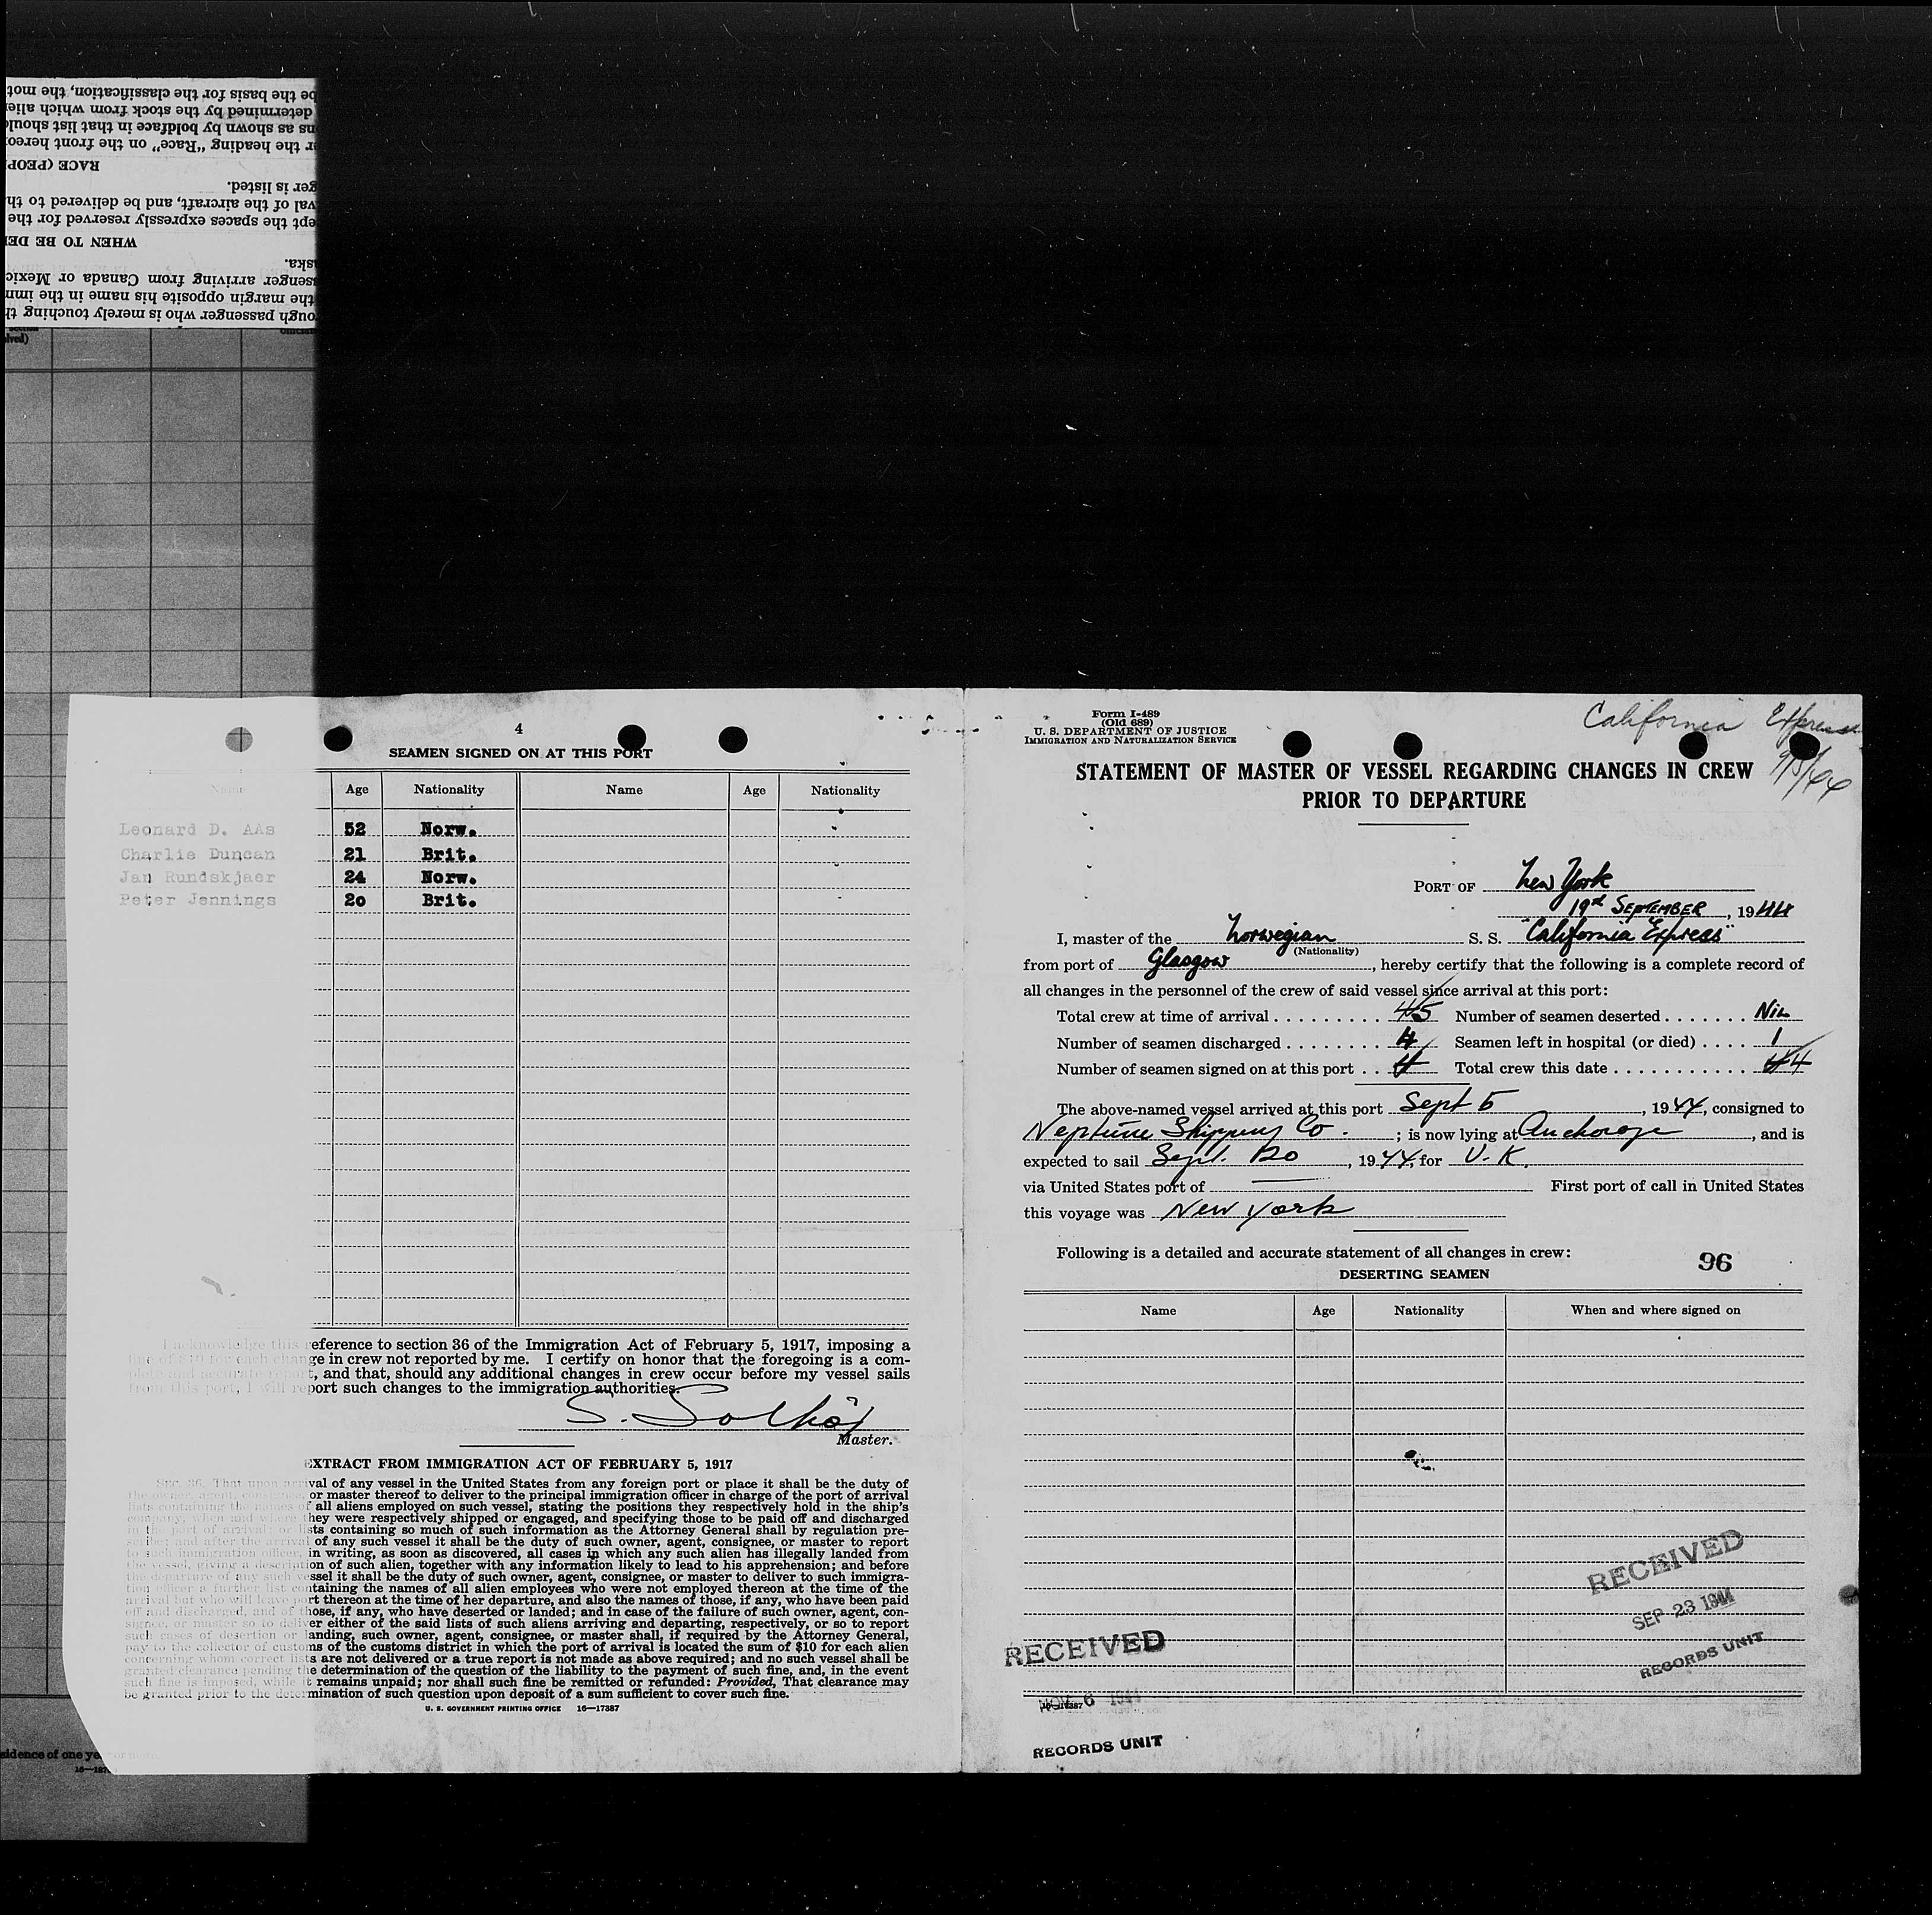 be the basis for the classification, the mot
determined by the stock from which alie
ns as shown by boldface in that list should
er the heading "Race" on the front hereo
RACE (PEOP
ger is listed.
val of the aircraft, and be delivered to th
ept the spaces expressly reserved for the
WHEN TO BE DEL
ska.
ssenger arriving from Canada or Mexic
the margin opposite his name in the imm
ough passenger who is merely touching th
4
SEAMEN SIGNED ON AT THIS PORT
Name Age Nationality Name Age Nationality
Leonard D. AAs 52 Norw.
Charlie Duncan 21 Brit.
Jan Rundskjaer 24 Norw.
Peter Jennings 20 Brit.
I acknowledge this reference to section 36 of the Immigration Act of February 5, 1917, imposing a
fine of $10 for each change in crew not reported by me. I certify on honor that the foregoing is a com-
plete and accurate report, and that, should any additional changes in crew occur before my vessel sails
from this port, I will report such changes to the immigration authorities.
Master.
EXTRACT FROM IMMIGRATION ACT OF FEBRUARY 5, 1917
Sec. 36. That upon arrival of any vessel in the United States from any foreign port or place it shall be the duty of
the owner, agent, consignee, or master thereof to deliver to the principal immigration officer in charge of the port of arrival
lists containing the names of all aliens employed on such vessel, stating the positions they respectively hold in the ship's
company, when and where they were respectively shipped or engaged, and specifying those to be paid off and discharged
in the port of arrival; or lists containing so much of such information as the Attorney General shall by regulation pre-
scribe; and after the arrival of any such vessel it shall be the duty of such owner, agent, consignee, or master to report
to such immigration officer, in writing, as soon as discovered, all cases in which any such alien has illegally landed from
the vessel, giving a description of such alien, together with any information likely to lead to his apprehension; and before
the departure of any such vessel it shall be the duty of such owner, agent, consignee, or master to deliver to such immigra-
tion officer a further list containing the names of all alien employees who were not employed thereon at the time of the
arrival but who will leave port thereon at the time of her departure, and also the names of those, if any, who have been paid
off and discharged, and of those, if any, who have deserted or landed; and in case of the failure of such owner, agent, con-
signee, or master so to deliver either of the said lists of such aliens arriving and departing, respectively, or so to report
such cases of desertion or landing, such owner, agent, consignee, or master shall, if required by the Attorney General,
pay to the collector of customs of the customs district in which the port of arrival is located the sum of $10 for each alien
concerning whom correct lists are not delivered or a true report is not made as above required; and no such vessel shall be
granted clearance pending the determination of the question of the liability to the payment of such fine, and, in the event
such fine is imposed, while it remains unpaid; nor shall such fine be remitted or refunded: Provided, That clearance may
be granted prior to the determination of such question upon deposit of a sum sufficient to cover such fine.
U. S. GOVERNMENT PRINTING OFFICE 16—17387
sidence of one ye
Form I-489
(Old 689)
U. S. DEPARTMENT OF JUSTICE
IMMIGRATION AND NATURALIZATION SERVICE
California Express
9/5/44
STATEMENT OF MASTER OF VESSEL REGARDING CHANGES IN CREW
PRIOR TO DEPARTURE
PORT OF New York
19th SEPTEMBER, 1944
I, master of the Norwegian S. S. "California Express"
(Nationality)
from port of Glasgow, hereby certify that the following is a complete record of
all changes in the personnel of the crew of said vessel since arrival at this port:
Total crew at time of arrival . . . . . . . . . 45 Number of seamen deserted . . . . . . . Nil
Number of seamen discharged . . . . . . . . 4 Seamen left in hospital (or died) . . . . 1
Number of seamen signed on at this port . . 4 Total crew this date . . . . . . . . . . . . 44
The above-named vessel arrived at this port Sept 5, 1944, consigned to
Neptune Shipping Co. ; is now lying at Anchorage, and is
expected to sail Sept. 20, 1944, for U. K.
via United States port of —— First port of call in United States
this voyage was New York
Following is a detailed and accurate statement of all changes in crew: 96
DESERTING SEAMEN
Name Age Nationality When and where signed on
RECEIVED
SEP 23 1944
RECORDS UNIT
RECEIVED
NOV 6 1944
16—17387
RECORDS UNIT